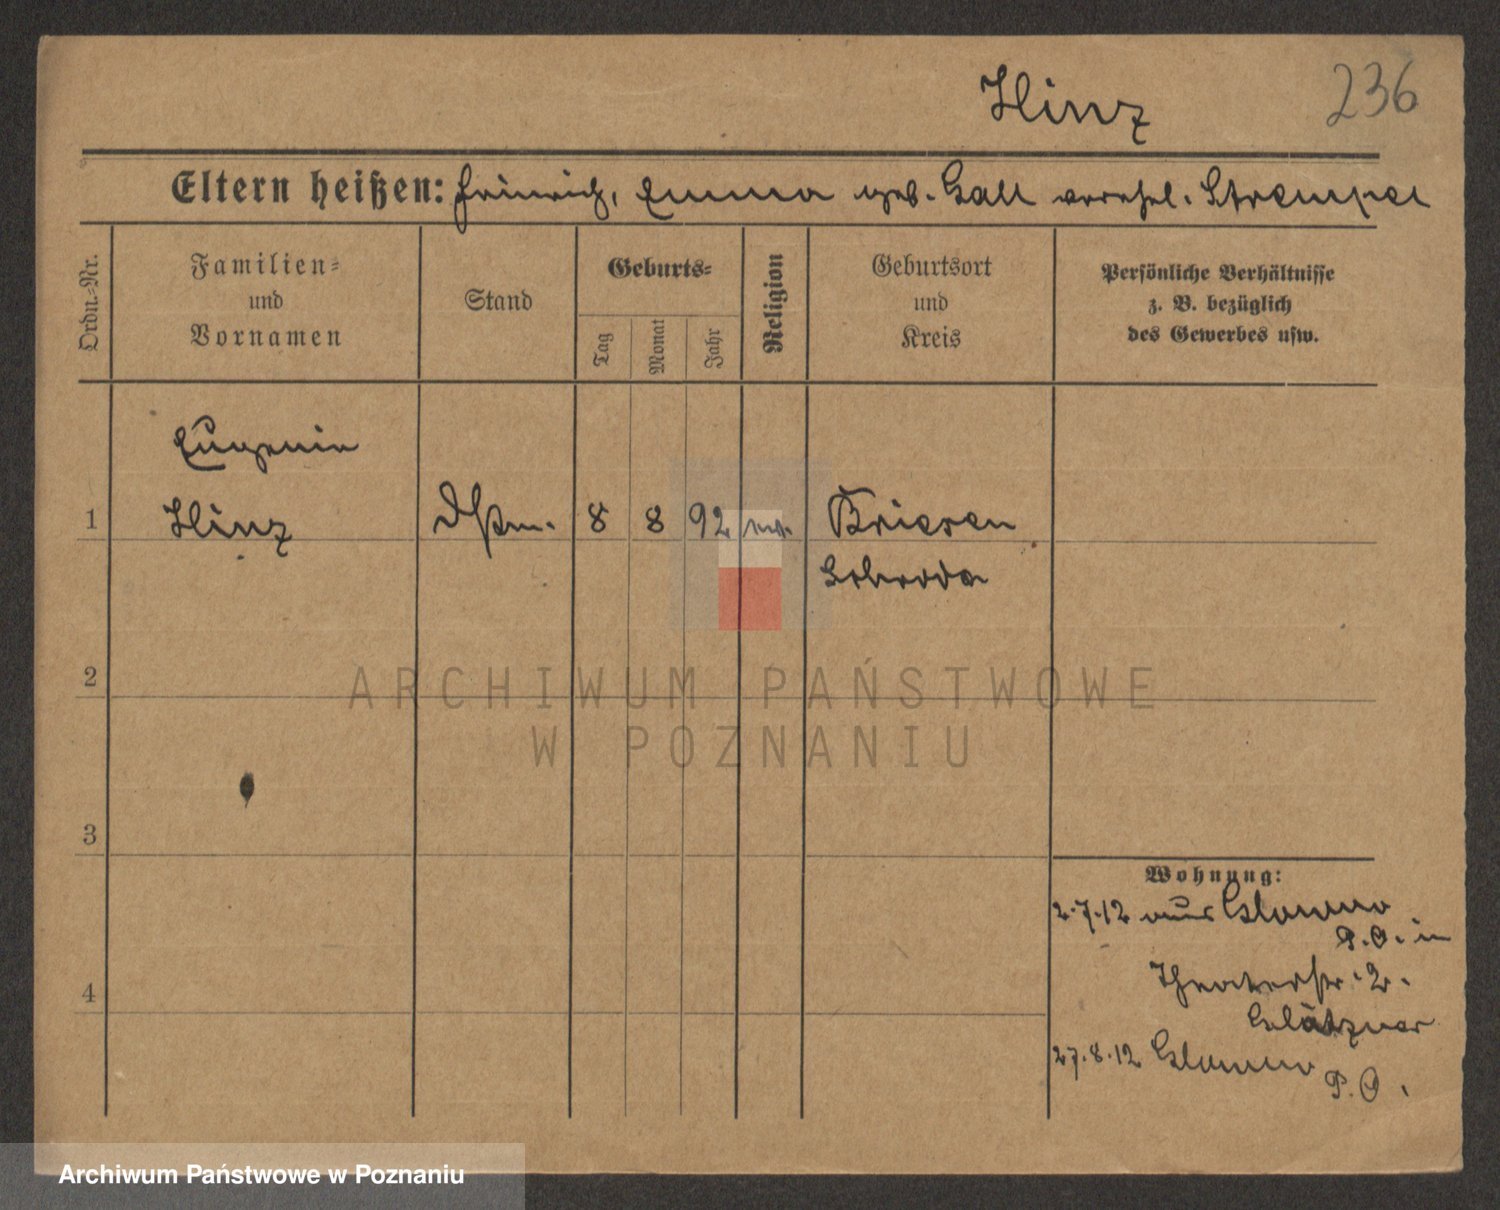 Hinz 236
Eltern heißen: Heinrich, Emma geb. Gall verehel. Strempel
Ordn.=Nr.
Familien=
und
Vornamen
Stand
Geburts=
Tag
Monat
Jahr
Religion
Geburtsort
und
Kreis
Persönliche Verhältnisse
z. B. bezüglich
des Gewerbes usw.
Eugenie
1 Hinz 8 8 92 Briesen
Schroda
2
3
4
Wohnung:
2.7.12 aus
P.O. in
Theaterstr. 2.
27.8.12
P.O.
ARCHIWUM PAŃSTWOWE
W POZNANIU
Archiwum Państwowe w Poznaniu